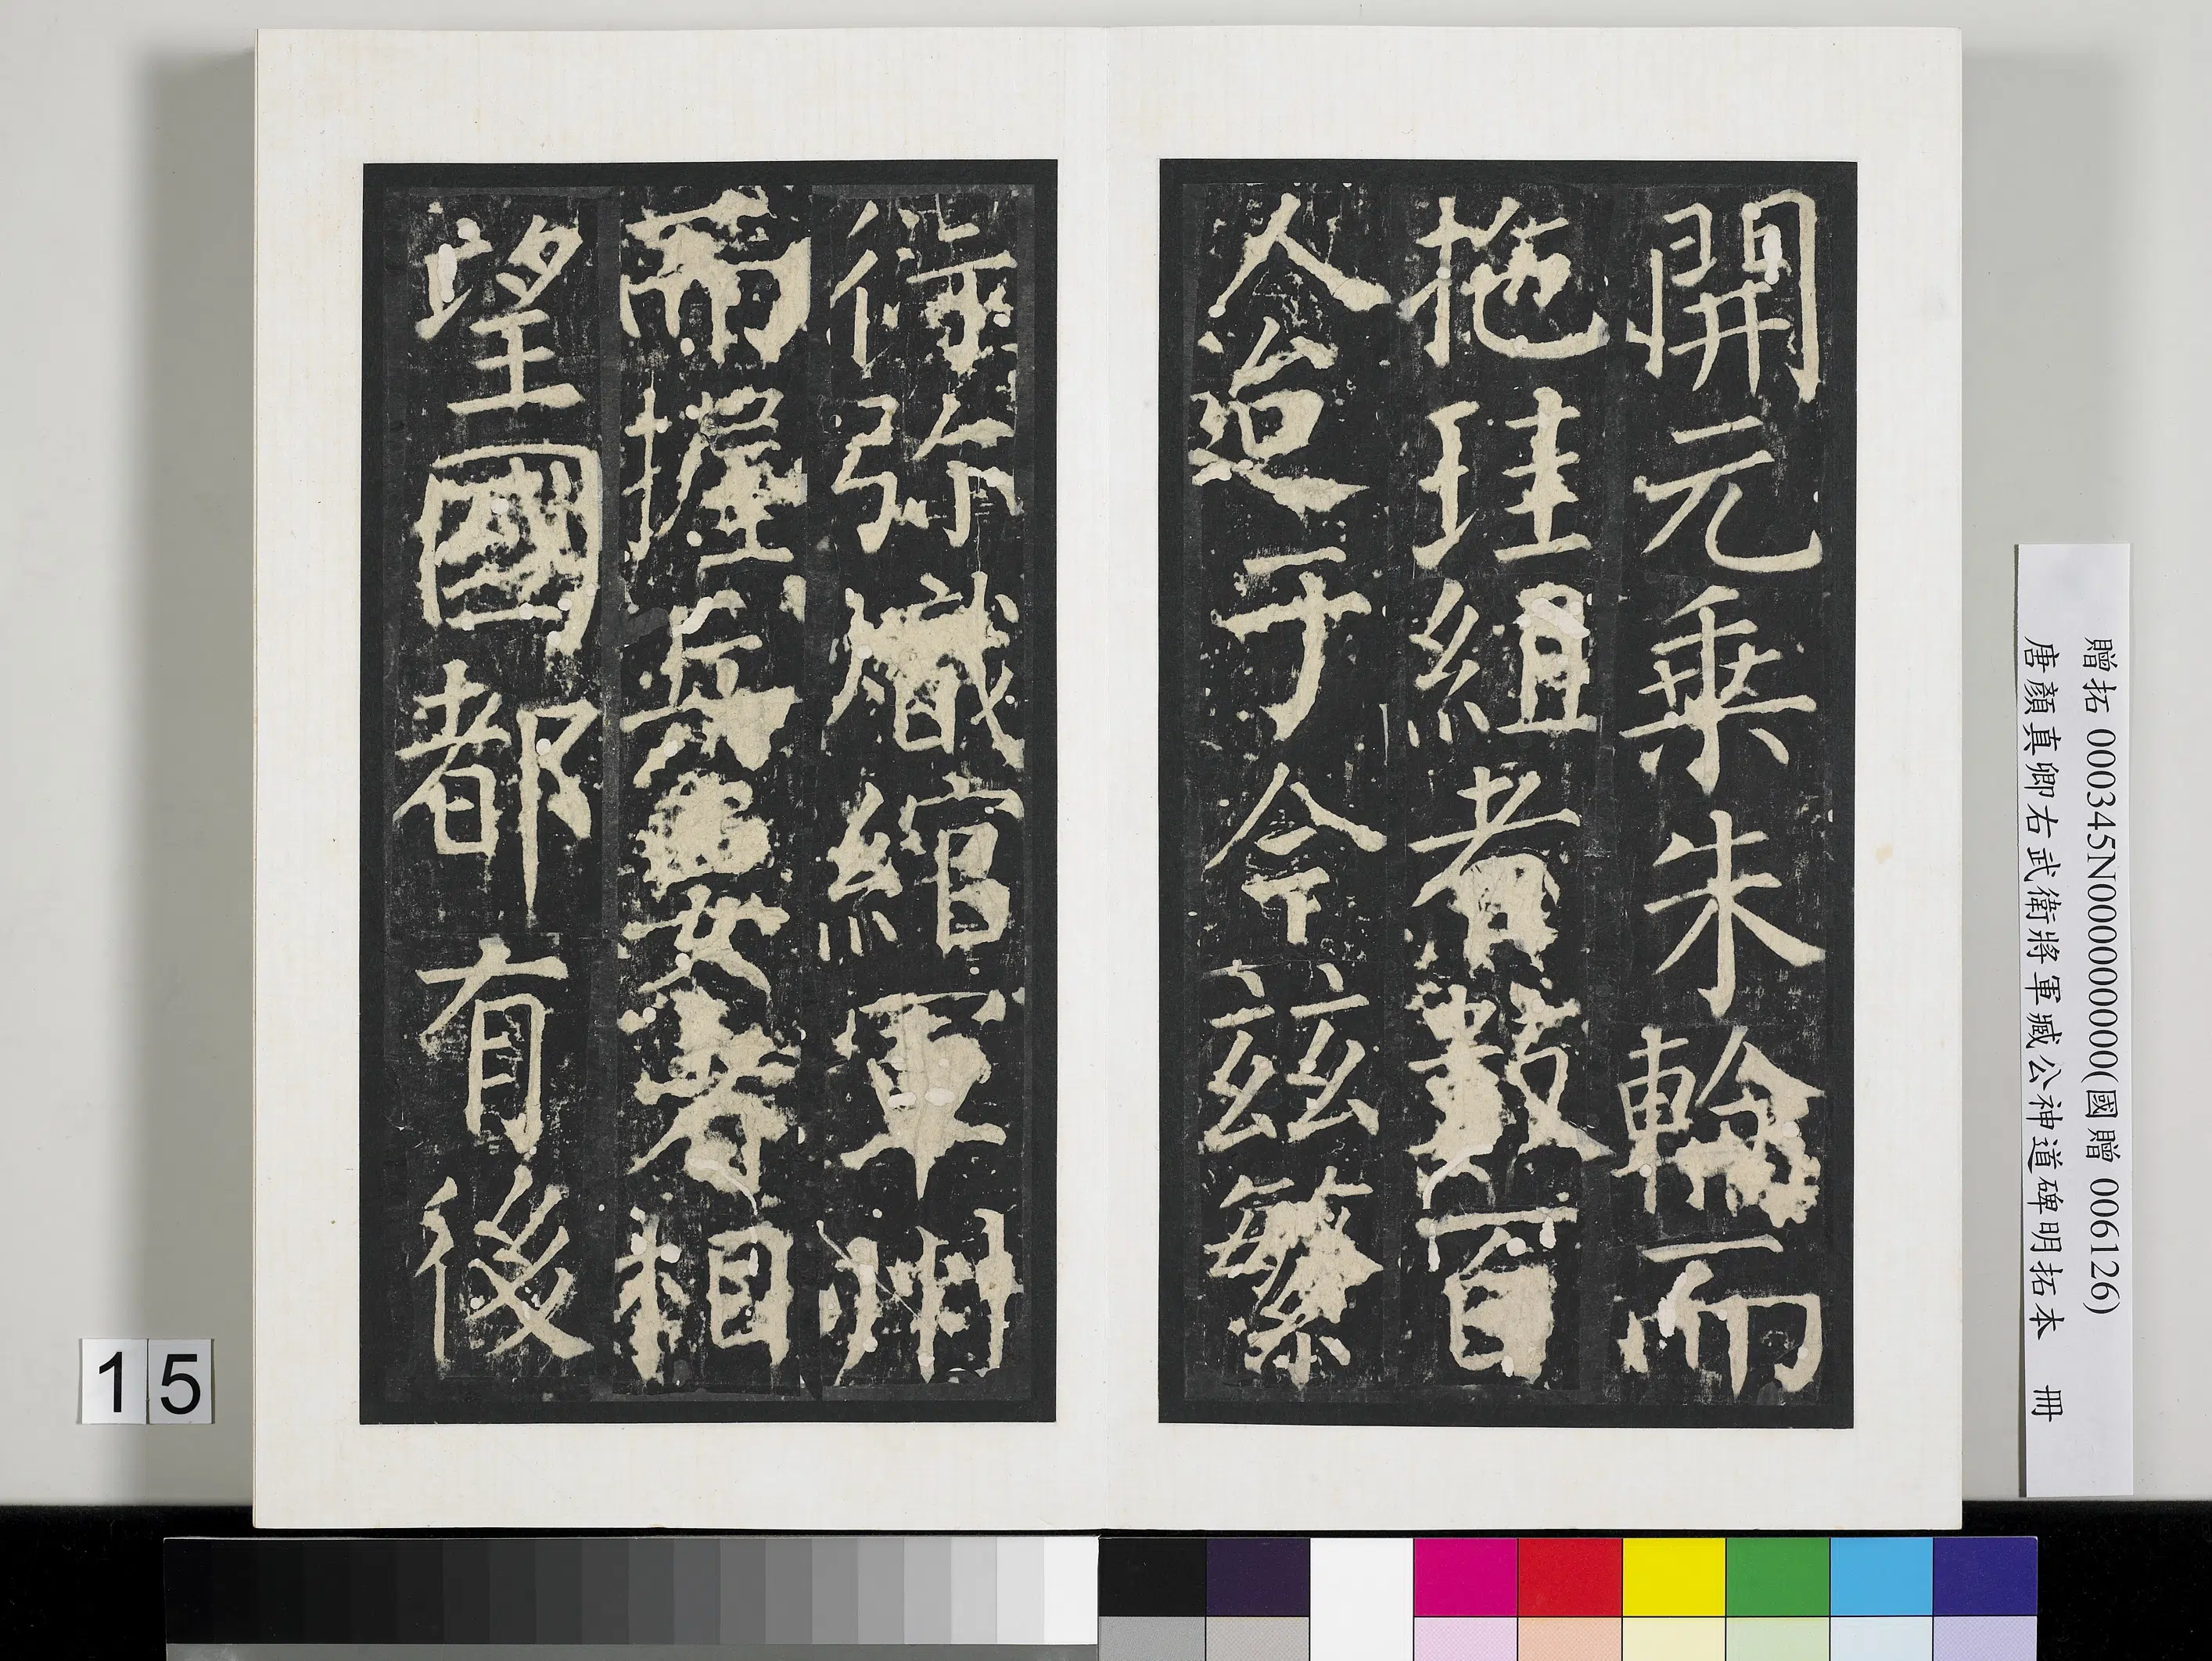 開元乗朱輪而
拖珪組者數百
人迨于今茲繁
衍弥熾綰軍州
而握兵要者相
望國都有後
贈拓 000345N000000000(國贈 006126)
唐顏真卿右武衛將軍臧公神道碑明拓本 冊
15